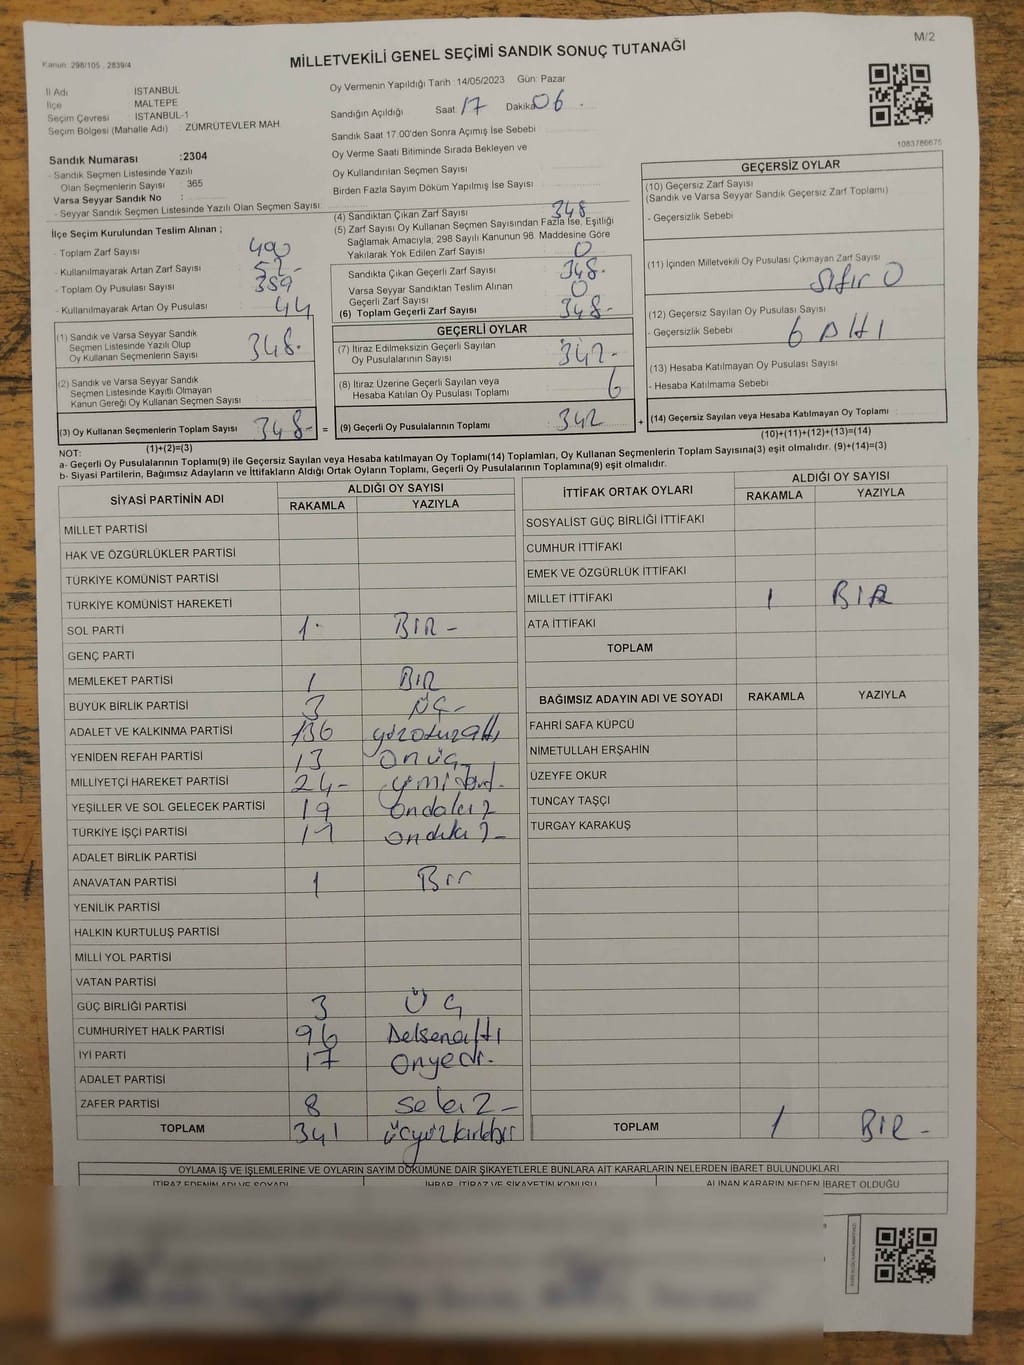 M/2
Kanun: 298/105 , 2839/4
MİLLETVEKİLİ GENEL SEÇİMİ SANDIK SONUÇ TUTANAĞI
İl Adı İSTANBUL
İlçe MALTEPE
Seçim Çevresi İSTANBUL-1
Seçim Bölgesi (Mahalle Adı) ZÜMRÜTEVLER MAH
Oy Vermenin Yapıldığı Tarih 14/05/2023 Gün: Pazar
Sandığın Açıldığı Saat: 17 Dakika 06
Sandık Saat 17:00'den Sonra Açımış İse Sebebi
Oy Verme Saati Bitiminde Sırada Bekleyen ve
Oy Kullandırılan Seçmen Sayısı
Birden Fazla Sayım Döküm Yapılmış İse Sayısı
1083786675
Sandık Numarası :2304
- Sandık Seçmen Listesinde Yazılı
Olan Seçmenlerin Sayısı : 365
Varsa Seyyar Sandık No :
- Seyyar Sandık Seçmen Listesinde Yazılı Olan Seçmen Sayısı:
İlçe Seçim Kurulundan Teslim Alınan ;
- Toplam Zarf Sayısı 400
- Kullanılmayarak Artan Zarf Sayısı 52-
- Toplam Oy Pusulası Sayısı
- Kullanılmayarak Artan Oy Pusulası 44
(1) Sandık ve Varsa Seyyar Sandık
Seçmen Listesinde Yazılı Olup
Oy Kullanan Seçmenlerin Sayısı 348-
(2) Sandık ve Varsa Seyyar Sandık
Seçmen Listesinde Kayıtlı Olmayan
Kanun Gereği Oy Kullanan Seçmen Sayısı
(3) Oy Kullanan Seçmenlerin Toplam Sayısı 348-
(1)+(2)=(3)
(4) Sandıktan Çıkan Zarf Sayısı 348
(5) Zarf Sayısı Oy Kullanan Seçmen Sayısından Fazla İse, Eşitliği
Sağlamak Amacıyla, 298 Sayılı Kanunun 98. Maddesine Göre
Yakılarak Yok Edilen Zarf Sayısı 0
Sandıkta Çıkan Geçerli Zarf Sayısı 348-
Varsa Seyyar Sandıktan Teslim Alınan
Geçerli Zarf Sayısı 0
(6) Toplam Geçerli Zarf Sayısı 348-
GEÇERLİ OYLAR
(7) İtiraz Edilmeksizin Geçerli Sayılan
Oy Pusulalarının Sayısı 342-
(8) İtiraz Üzerine Geçerli Sayılan veya
Hesaba Katılan Oy Pusulası Toplamı 6
= (9) Geçerli Oy Pusulalarının Toplamı 342
GEÇERSİZ OYLAR
(10) Geçersiz Zarf Sayısı
(Sandık ve Varsa Seyyar Sandık Geçersiz Zarf Toplamı)
- Geçersizlik Sebebi
(11) İçinden Milletvekili Oy Pusulası Çıkmayan Zarf Sayısı
Sıfır 0
(12) Geçersiz Sayılan Oy Pusulası Sayısı
- Geçersizlik Sebebi 6 ALTI
(13) Hesaba Katılmayan Oy Pusulası Sayısı
- Hesaba Katılmama Sebebi
+ (14) Geçersiz Sayılan veya Hesaba Katılmayan Oy Toplamı
(10)+(11)+(12)+(13)=(14)
NOT:
a- Geçerli Oy Pusulalarının Toplamı(9) ile Geçersiz Sayılan veya Hesaba katılmayan Oy Toplamı(14) Toplamları, Oy Kullanan Seçmenlerin Toplam Sayısına(3) eşit olmalıdır. (9)+(14)=(3)
b- Siyasi Partilerin, Bağımsız Adayların ve İttifakların Aldığı Ortak Oyların Toplamı, Geçerli Oy Pusulalarının Toplamına(9) eşit olmalıdır.
SİYASİ PARTİNİN ADI ALDIĞI OY SAYISI
RAKAMLA YAZIYLA
MİLLET PARTİSİ
HAK VE ÖZGÜRLÜKLER PARTİSİ
TÜRKİYE KOMÜNİST PARTİSİ
TÜRKİYE KOMÜNİST HAREKETİ
SOL PARTİ 1 BİR -
GENÇ PARTİ
MEMLEKET PARTİSİ 1 BİR
BÜYÜK BİRLİK PARTİSİ 3 ÜÇ-
ADALET VE KALKINMA PARTİSİ 136 yüzotuzaltı
YENİDEN REFAH PARTİSİ 13 onüç
MİLLİYETÇİ HAREKET PARTİSİ 24-
YEŞİLLER VE SOL GELECEK PARTİSİ 19 ondokuz
TÜRKİYE İŞÇİ PARTİSİ
ADALET BİRLİK PARTİSİ
ANAVATAN PARTİSİ 1 Bir
YENİLİK PARTİSİ
HALKIN KURTULUŞ PARTİSİ
MİLLİ YOL PARTİSİ
VATAN PARTİSİ
GÜÇ BİRLİĞİ PARTİSİ 3 ÜÇ
CUMHURİYET HALK PARTİSİ 96
İYİ PARTİ 17 onyedi-
ADALET PARTİSİ
ZAFER PARTİSİ 8 sekiz-
TOPLAM 341 üçyüzkırkbir
İTTİFAK ORTAK OYLARI ALDIĞI OY SAYISI
RAKAMLA YAZIYLA
SOSYALİST GÜÇ BİRLİĞİ İTTİFAKI
CUMHUR İTTİFAKI
EMEK VE ÖZGÜRLÜK İTTİFAKI
MİLLET İTTİFAKI 1 BİR
ATA İTTİFAKI
TOPLAM
BAĞIMSIZ ADAYIN ADI VE SOYADI RAKAMLA YAZIYLA
FAHRİ SAFA KÜPCÜ
NİMETULLAH ERŞAHİN
ÜZEYFE OKUR
TUNCAY TAŞÇI
TURGAY KARAKUŞ
TOPLAM 1 BİR -
OYLAMA İŞ VE İŞLEMLERİNE VE OYLARIN SAYIM DÖKÜMÜNE DAİR ŞİKAYETLERLE BUNLARA AİT KARARLARIN NELERDEN İBARET BULUNDUKLARI
İTİRAZ EDENİN ADI VE SOYADI İHBAR, İTİRAZ VE ŞİKAYETİN KONUSU ALINAN KARARIN NEDEN İBARET OLDUĞU